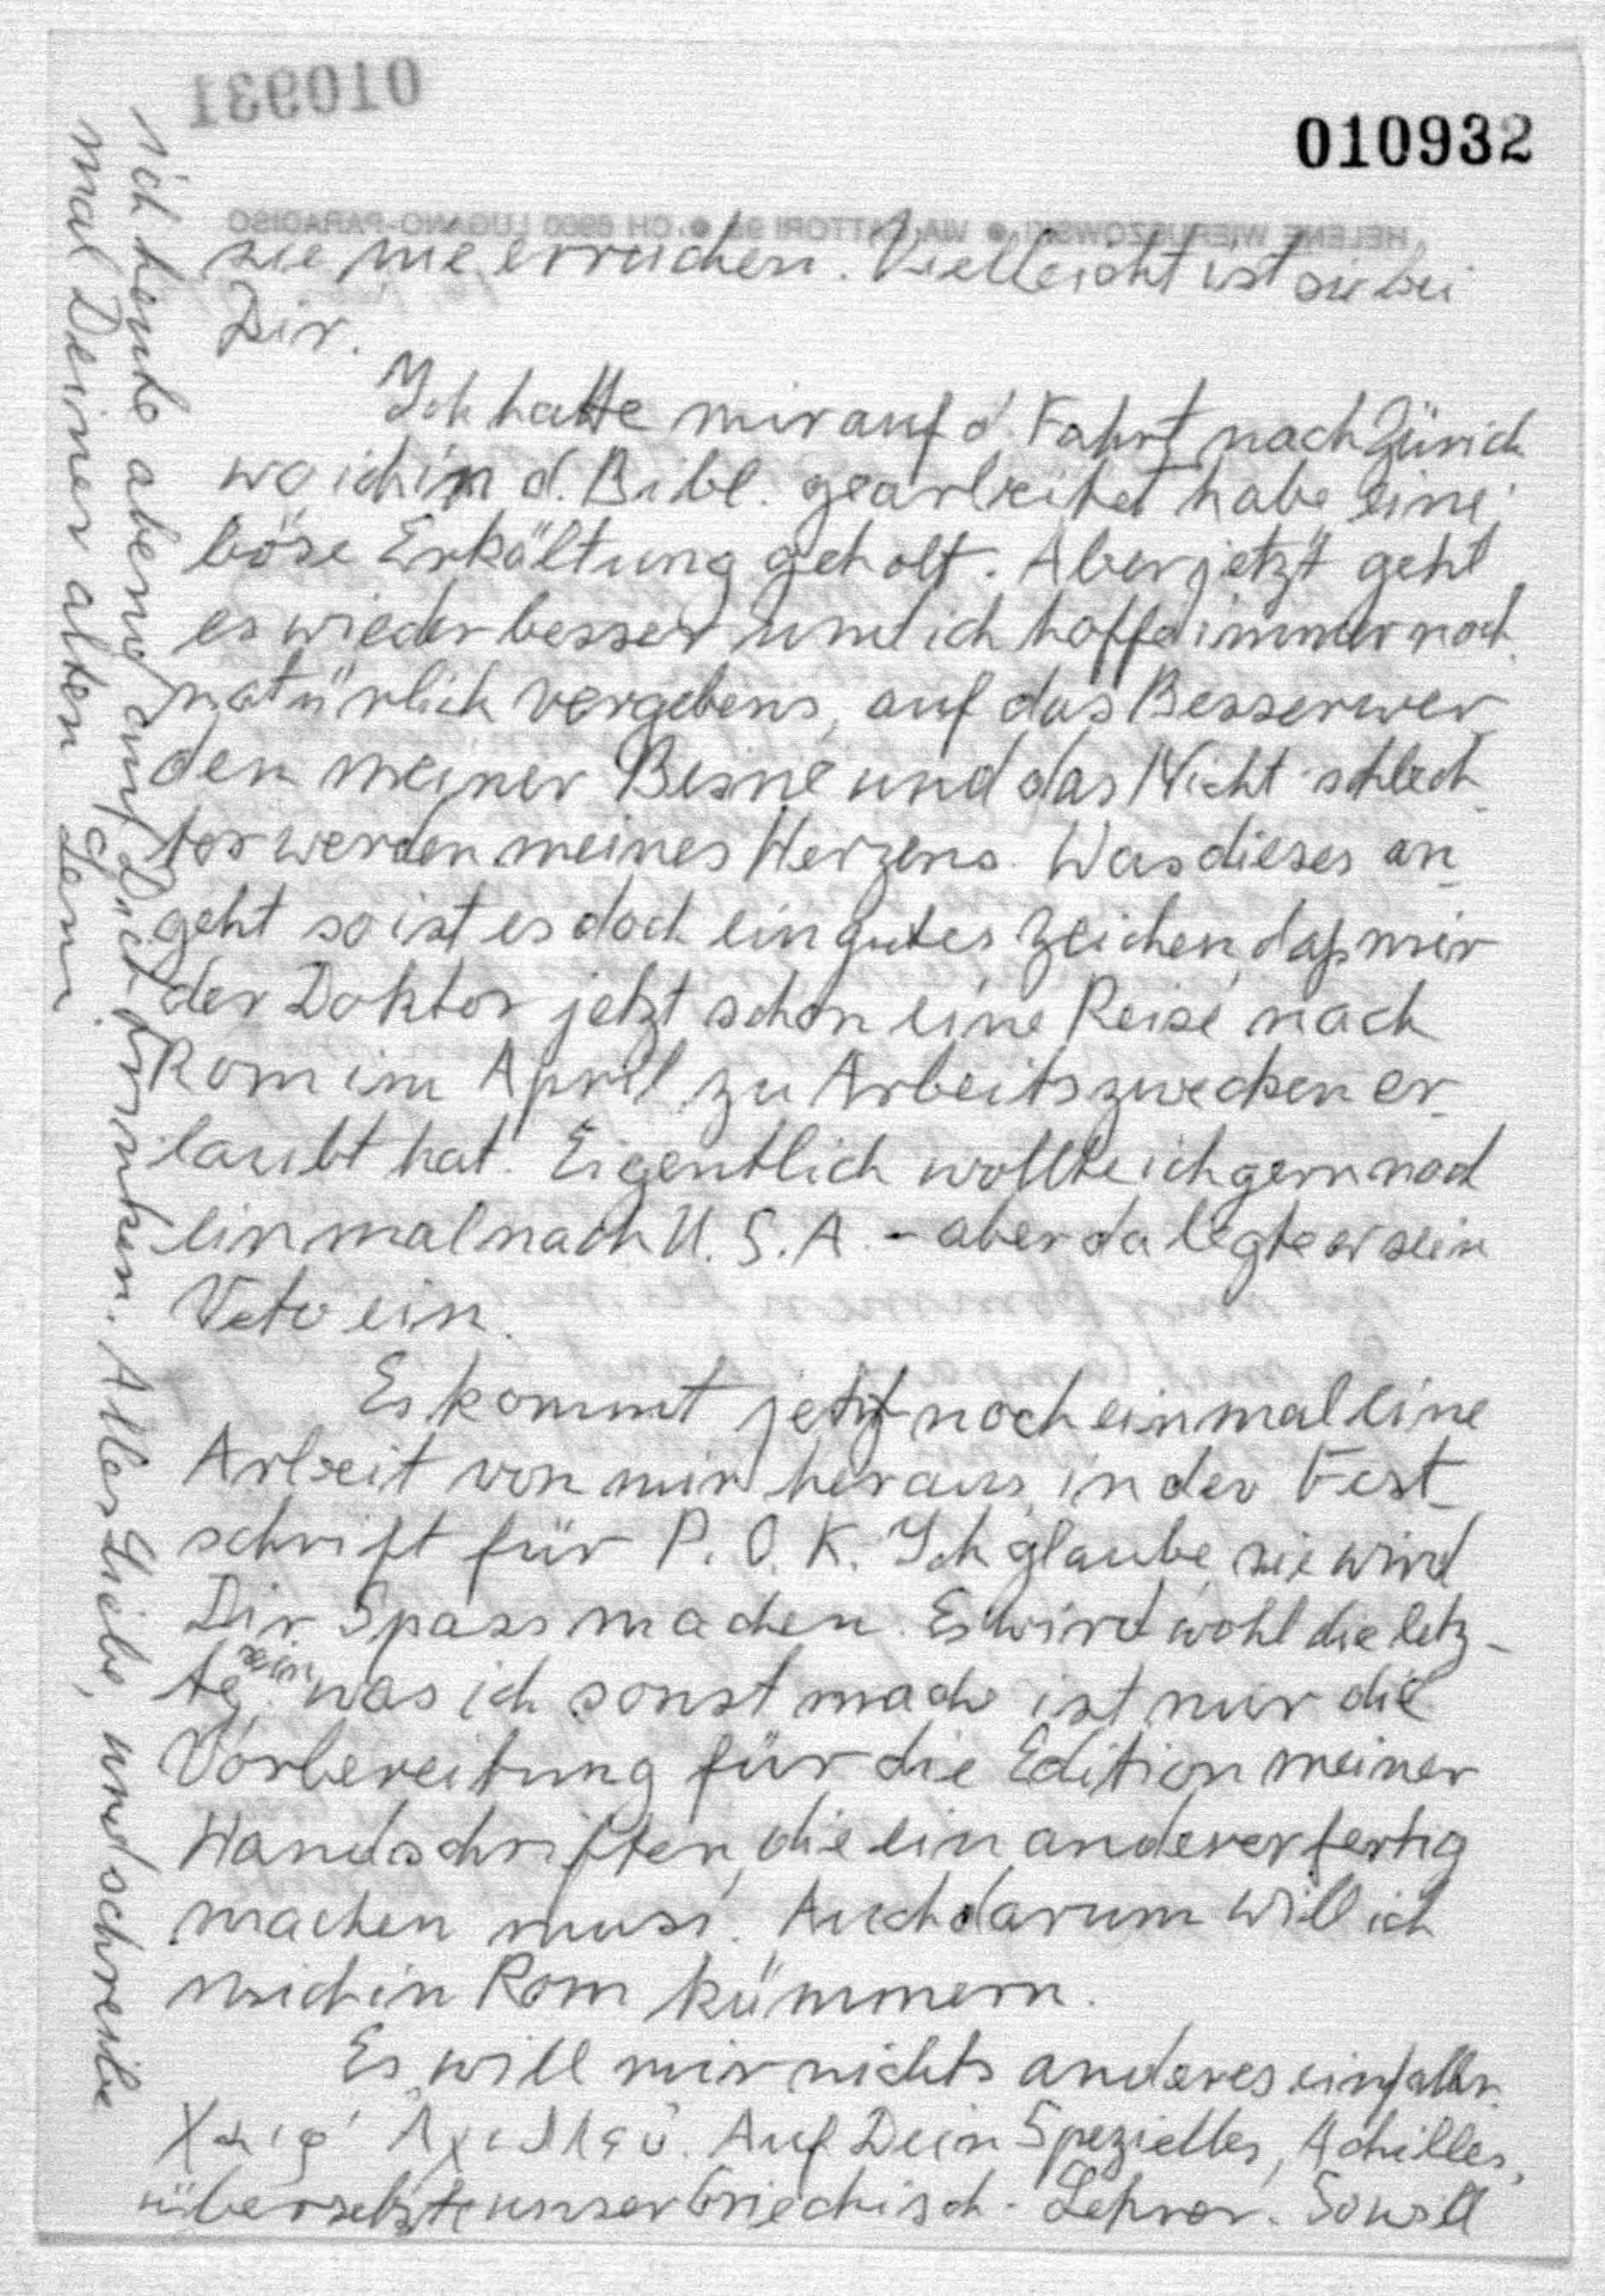 010932
sie nie erreichen. Vielleicht ist sie bei
Dir.
Ich hatte mir auf d. Fahrt nach Zürich
wo ich in d. Bibl. gearbeitet habe eine
böse Erkältung geholt. Aber jetzt geht
es wieder besser und ich hoffe immer noch
natürlich vergebens, auf das Besserwer
den meiner Beine und das Nicht-schlech-
ter werden meines Herzens. Was dieses an-
geht so ist es doch ein gutes Zeichen, daß mir
der Doktor jetzt schon eine Reise nach
Rom im April zu Arbeitszwecken er-
laubt hat. Eigentlich wollte ich gern noch
einmal nach U.S.A. - aber da legte er sein
Veto ein.
Es kommt jetzt noch einmal eine
Arbeit von mir heraus, in der Fest-
schrift für P. O. K. Ich glaube, sie wird
Dir Spass machen. Es wird wohl die letz-
te sein. was ich sonst mache ist nur die
Vorbereitung für die Edition meiner
Handschriften, die ein anderer fertig
machen muss. Auch darum will ich
mich in Rom kümmern.
Es will mir nichts anderes einfallen.
Auf Dein Spezielles, Achilles,
übersetzte unser Griechisch-Lehrer. So will
ich heute abend auf Dich trinken. Alles Liebe, und schreibe
mal Deiner alten Leni
010931
HELENE WIERUSZOWSKI • VIA CATTORI • CH 6900 LUGANO-PARADISO